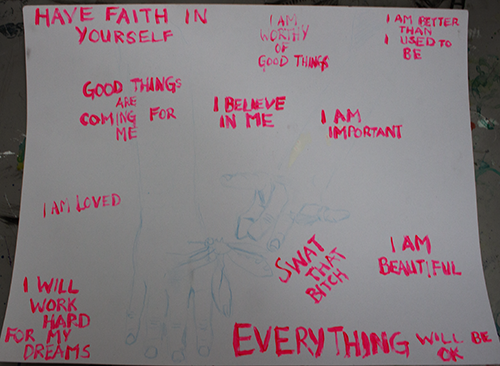 HAVE FAITH IN
YOURSELF
I AM
WORTHY
OF
GOOD THINGS
I AM BETTER
THAN
I USED TO
BE
GOOD THINGS
ARE
COMING FOR
ME
I BELIEVE
IN ME
I AM
IMPORTANT
I AM LOVED
SWAT
THAT
BITCH
I AM
BEAUTIFUL
I WILL
WORK
HARD
FOR MY
DREAMS
EVERYTHING WILL BE
OK